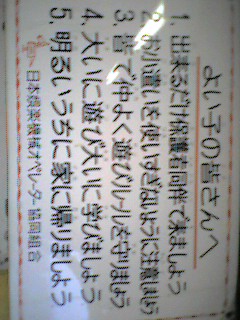 よい子の皆さんへ
1. 出来るだけ保護者同伴で来ましょう
2. お小遣いを使いすぎないように注意しましょう
3. 皆で仲よく遊びルールを守りましょう
4. 大いに遊び大いに学びましょう
5. 明るいうちに家に帰りましょう
日本娯楽機械オペレーター協同組合